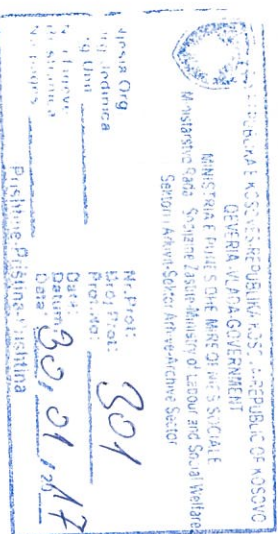 REPUBLIKA E KOSOVËS-REPUBLIKA KOSOVA-REPUBLIC OF KOSOVO
QEVERIA-VLADA-GOVERNMENT
MINISTRIA E PUNËS DHE MIRËQENIES SOCIALE
Ministarstvo Rada i Socijalne Zaštite-Ministry of Labour and Social Welfare
Sektori i Arkivit-Sektor Arhive-Archive Sector
Njësia Org
Org Jedinica
Org Unit
Nr. i faqeve
Br. stranica
No. pages
Nr. Prot:
Br. Prot:
Prot. No:
301
Data:
Datum:
Date:
30.01.2017
Prishtinë-Priština-Prishtina